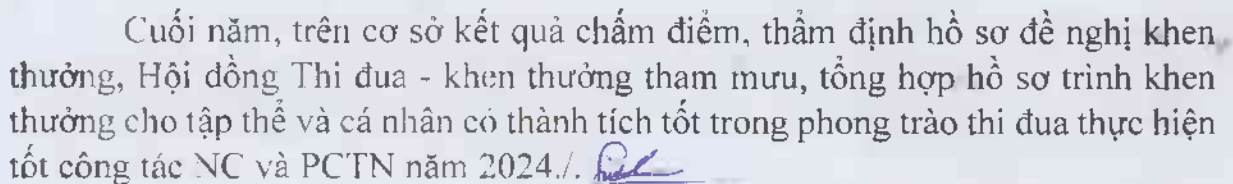 Cuối năm, trên cơ sở kết quả chấm điểm, thẩm định hồ sơ đề nghị khen
thưởng, Hội đồng Thi đua - khen thưởng tham mưu, tổng hợp hồ sơ trình khen
thưởng cho tập thể và cá nhân có thành tích tốt trong phong trào thi đua thực hiện
tốt công tác NC và PCTN năm 2024./.